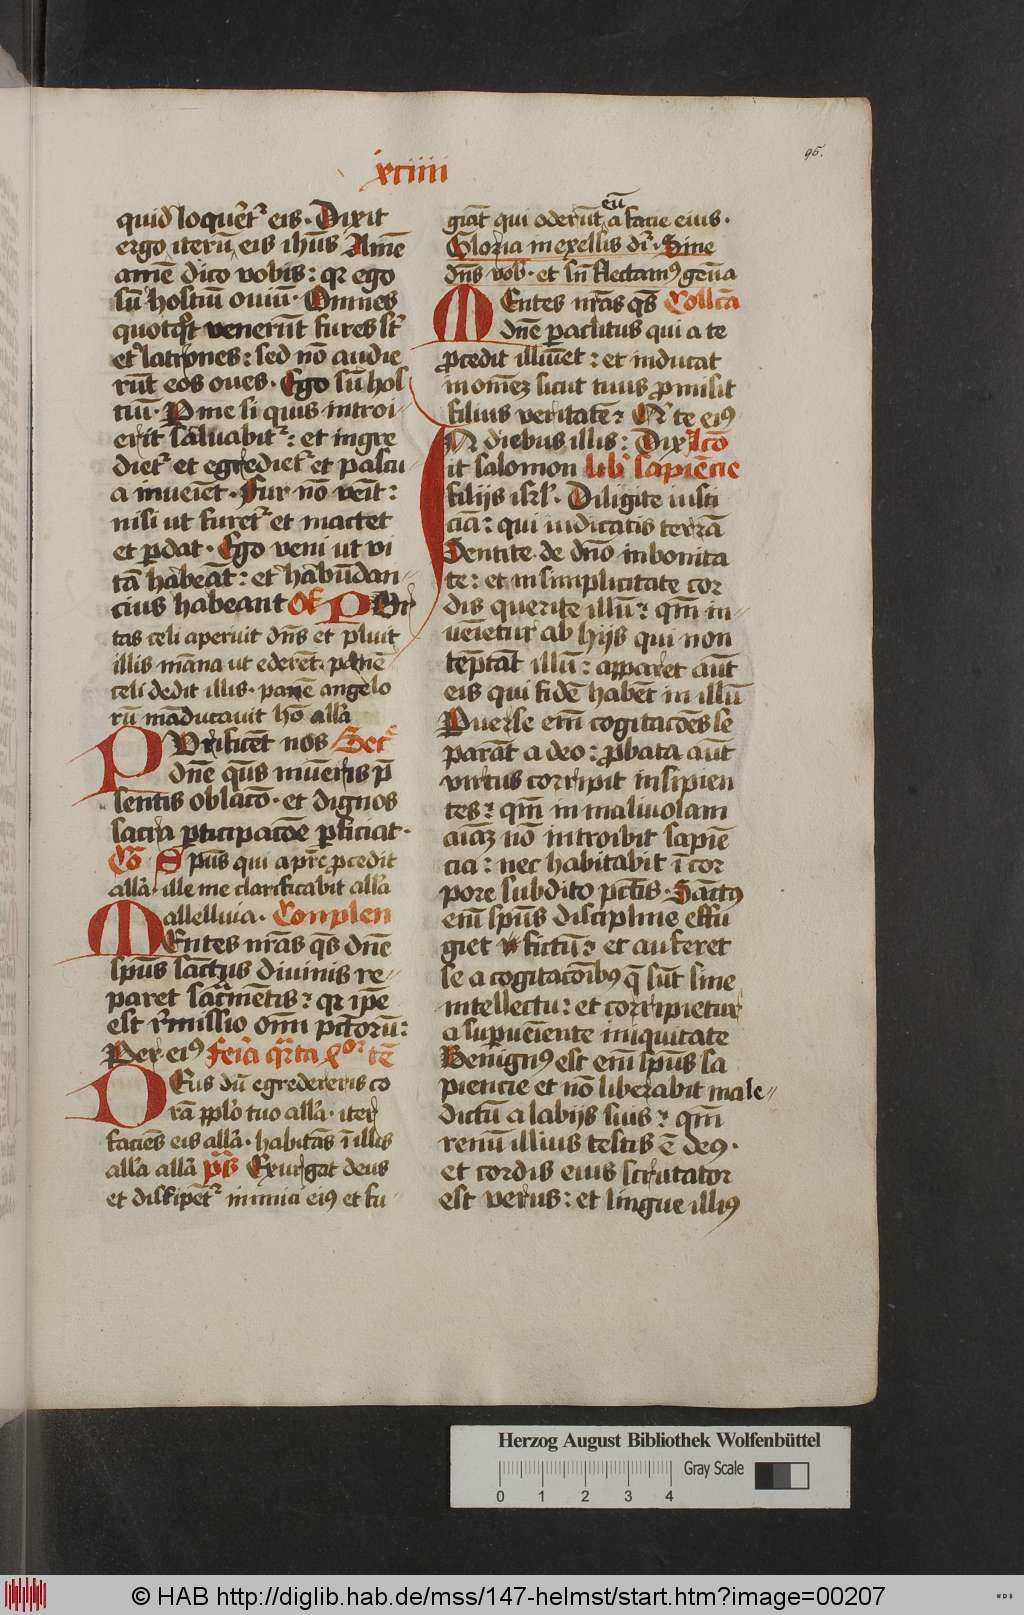 xciiii
95.
quid loquēt᷑ eis. Dixit
ergo iterū eis ihūs Amē
amē dico vobis: qꝛ ego
sū hostiū ouiū. Omnes
quotq̊t venerūt fures st᷑
et latrones: sed nō audie
rūt eos oues. Ego sū hos
tiū. P me si quis introi
erit saluabit᷑: et ingre
diet᷑ et egrediet᷑ et pascu
a inueiēt. Fur nō veīt:
nisi ut furet᷑ et mactet
et ꝑdat. Ego veni ut vi
tā habeāt: et habūdan
cius habeant Of Por
tas celi aperuit dn̄s et pluit
illis māna ut ederēt. panē
celi dedit illis. panē angelo
rū māducauit hō all̄a
PVrificēt nos Sec᷑
dn̄e q̄s mūeris p̄
sentis oblac̄o. et dignos
sacra ꝑticipac̄oe ꝑficiat.
Cō Spūs qui a pr̄e ꝓcedit
all̄a. ille me clarificabit all̄a
allelluia. Complen
MEntes nr̄as q̄s dn̄e
spūs sāctus diuinis re
paret sac̄mētis: qꝛ ip̄e
est r̄missio om̄i pctōrū:
Per eiꝰ Feria q̄rta qͦr tē
DEus dū egredereris co
rā ppl̄o tuo all̄a. iter
faciēs eis all̄a. habitās ī illis
all̄a all̄a p̄s Exurgat deus
et dissipēt᷑ inimici eiꝰ et fu
giāt qui oderūt eū a facie eius.
Gloria in excellis di᷑. Sine
dn̄s vob᷑. et sn̄ flectamꝰ genua
MEntes nr̄as q̄s Collc̄a
dn̄e paclitus qui a te
ꝓcedit illuīet: et inducat
in omēz sicut tuus ꝓmisit
filius veritatē: Qi᷑ te eiꝰ
IN diebus illis: Dix Lc̄o
it salomon lib᷑i sapiēcie
filijs isrl᷑. Diligite iusti
ciā: qui iudicatis terrā
Sentite de dn̄o in bonita
te: et in simplicitate cor
dis querite illū: qm̄ in
ueīetur ab hijs qui non
tēptāt illū: apparet aūt
eis qui fidē habēt in illū
Puerse em̄ cogitac̄oes se
parāt a deo: ꝓbata aūt
virtus corripit insipien
tes: qm̄ in maliuolam
aīaz nō introibit sapiē
cia: nec habitabit ī cor
pore subdito pctīs. Sāctꝰ
em̄ spūs discipline effu
giet fictū: et auferet
se a cogitac̄oibꝰ q̄ sūt sine
intellectu: et corripietur
a supueīente iniquitate
Benignꝰ est em̄ spūs sa
piencie et nō liberabit male
dictū a labijs suis: qm̄
renū illius testis ē deꝰ.
et cordis eius scrutator
est verus: et lingue illiꝰ
Herzog August Bibliothek Wolfenbüttel
Gray Scale
0 1 2 3 4
© HAB http://diglib.hab.de/mss/147-helmst/start.htm?image=00207